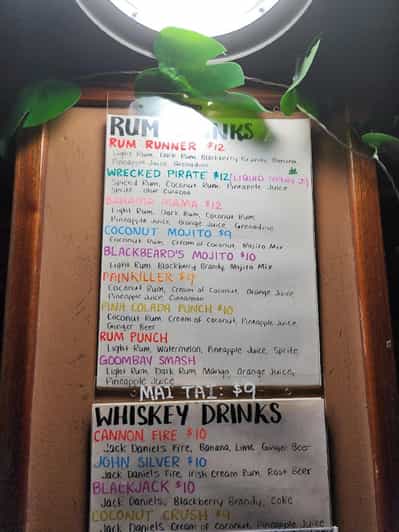 RUM DRINKS
RUM RUNNER $12
Light Rum, Dark Rum, Blackberry Brandy, Banana
Pineapple Juice, Grenadine
WRECKED PIRATE $12/LIQUID
Spiced Rum, Coconut Rum, Pineapple Juice
Sprite, Blue Curacao
BAHAMA MAMA $12
Light Rum, Dark Rum, Coconut Rum,
Pineapple Juice, Orange Juice, Grenadine
COCONUT MOJITO $9
Coconut Rum, Cream of Coconut, Mojito Mix
BLACKBEARD'S MOJITO $10
Light Rum, Blackberry Brandy, Mojito Mix
PAINKILLER $9
Coconut Rum, Cream of Coconut, Orange Juice
Pineapple Juice, Cinnamon
PINA COLADA PUNCH $10
Coconut Rum, Cream of Coconut, Pineapple Juice,
Ginger Beer
RUM PUNCH
Light Rum, Watermelon, Pineapple Juice, Sprite
GOOMBAY SMASH
Light Rum, Dark Rum, Mango, Orange Juice,
Pineapple Juice
MAI TAI: $9
WHISKEY DRINKS
CANNON FIRE $10
Jack Daniels Fire, Banana, Lime, Ginger Beer
JOHN SILVER $10
Jack Daniels Fire, Irish Cream Rum, Root Beer
BLACKJACK $10
Jack Daniels, Blackberry Brandy, Coke
COCONUT CRUSH $9
Jack Daniels, Cream of Coconut, Pineapple Juice